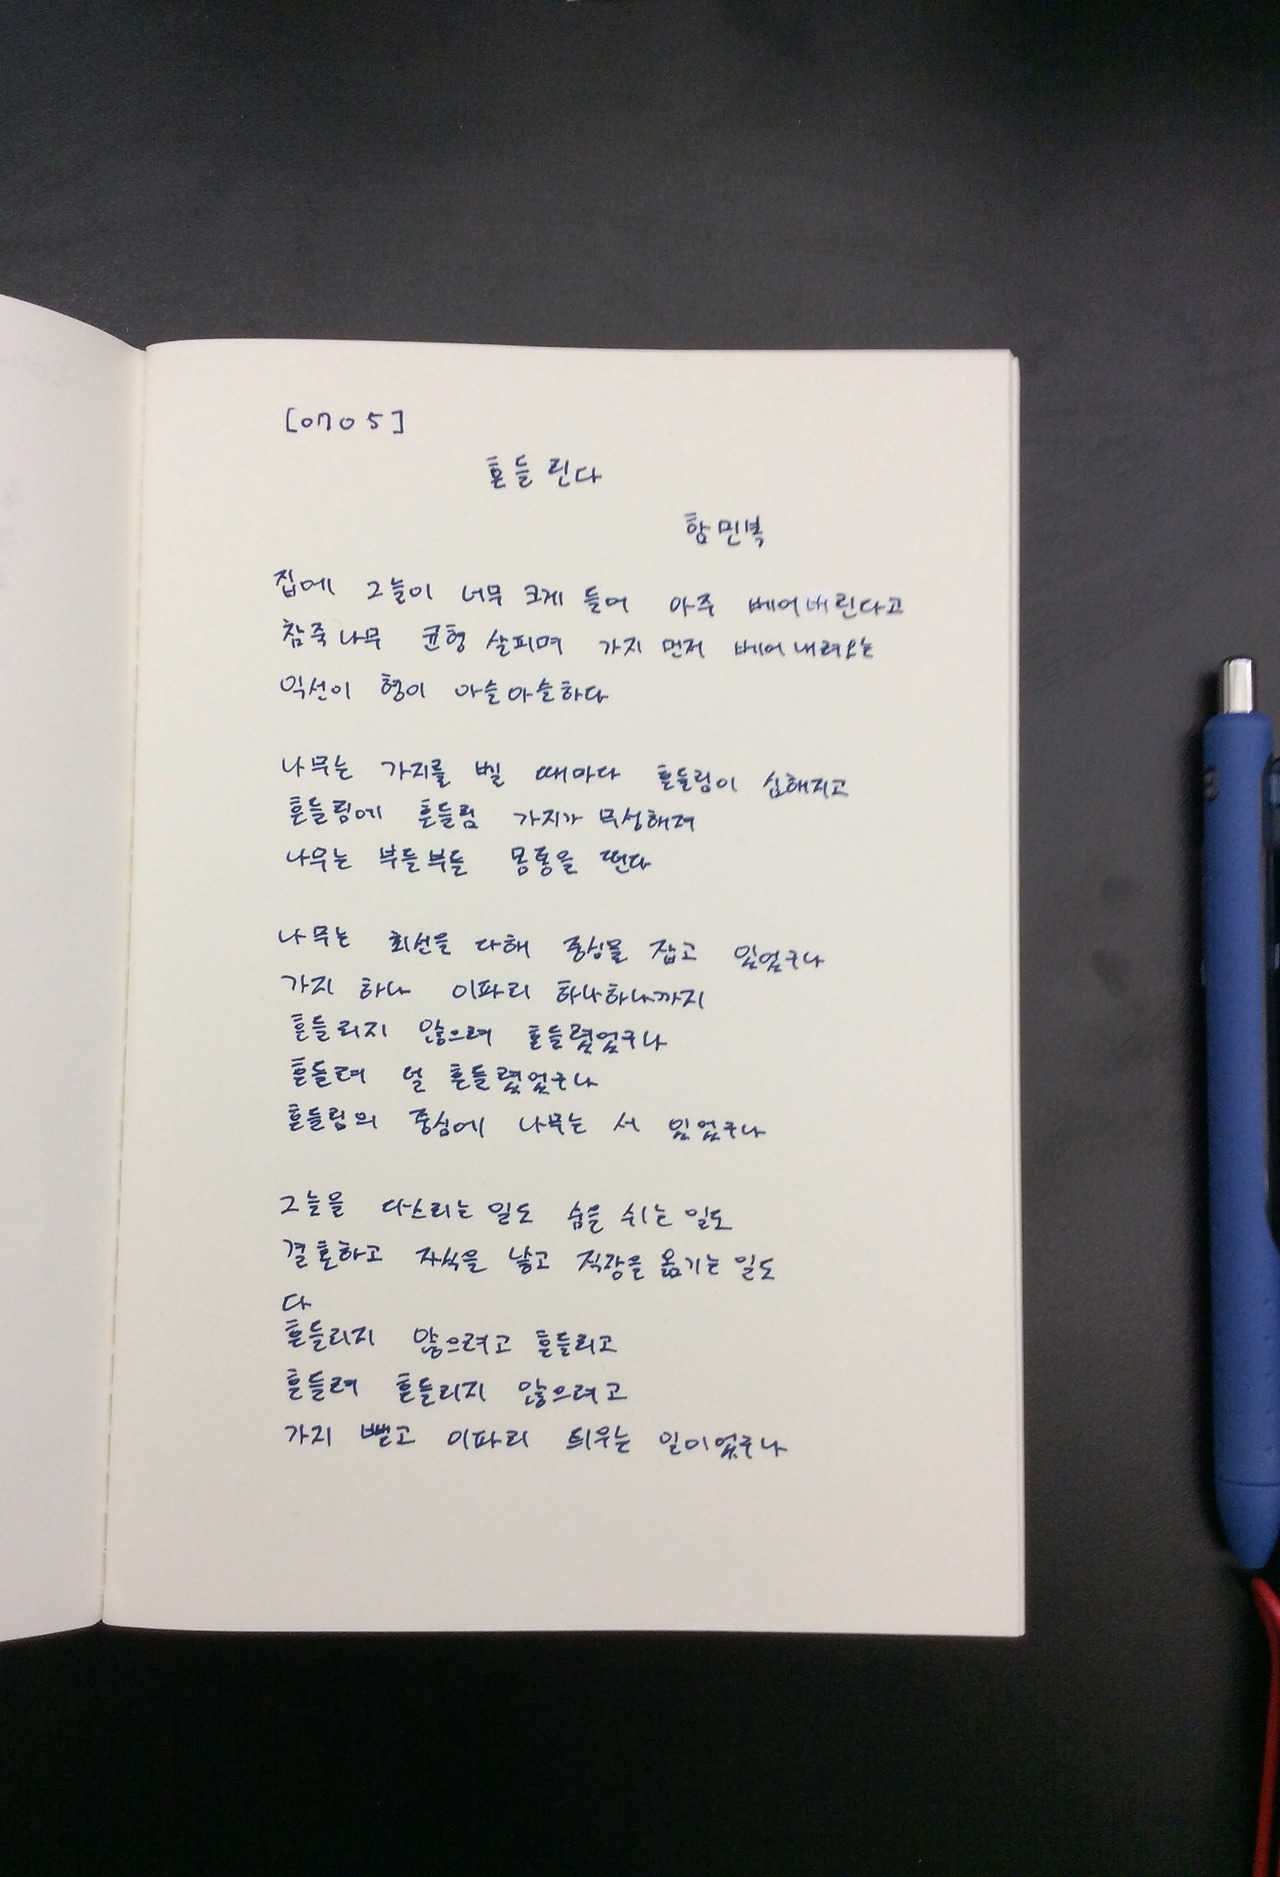 [0705]
흔들린다
함민복
집에 그늘이 너무 크게 들어 아주 베어버린다고
참죽나무 균형 살피며 가지 먼저 베어 내려오는
익선이 형이 아슬아슬하다
나무는 가지를 벨 때마다 흔들림이 심해지고
흔들림에 흔들림 가지가 무성해져
나무는 부들부들 몸통을 떤다
나무는 최선을 다해 중심을 잡고 있었구나
가지 하나 이파리 하나하나까지
흔들리지 않으려 흔들렸었구나
흔들려 덜 흔들렸었구나
흔들림의 중심에 나무는 서 있었구나
그늘을 다스리는 일도 숨을 쉬는 일도
결혼하고 자식을 낳고 직장을 옮기는 일도
다
흔들리지 않으려고 흔들리고
흔들려 흔들리지 않으려고
가지 뻗고 이파리 틔우는 일이었구나